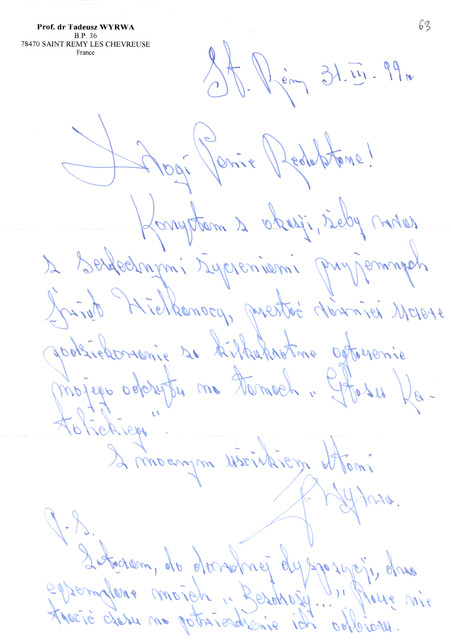 Prof. dr Tadeusz WYRWA
B.P. 36
78470 SAINT REMY LES CHEVREUSE
France
63
St. Rémy 31.III.99r.
Drogi Panie Redaktorze!
Korzystam z okazji, żeby wraz
z serdecznymi życzeniami przyjemnych
Świąt Wielkanocy, przesłać również szczere
podziękowanie za kilkakrotne ogłoszenie
mojego odczytu na łamach „Głosu Ka-
tolickiego".
Z mocnym uściskiem dłoni
T. Wyrwa.
P.S.
Załączam, do dowolnej dyspozycji, dwa
egzemplarze moich „Bezdroży..." Proszę nie
tracić czasu na potwierdzenie ich odbioru.